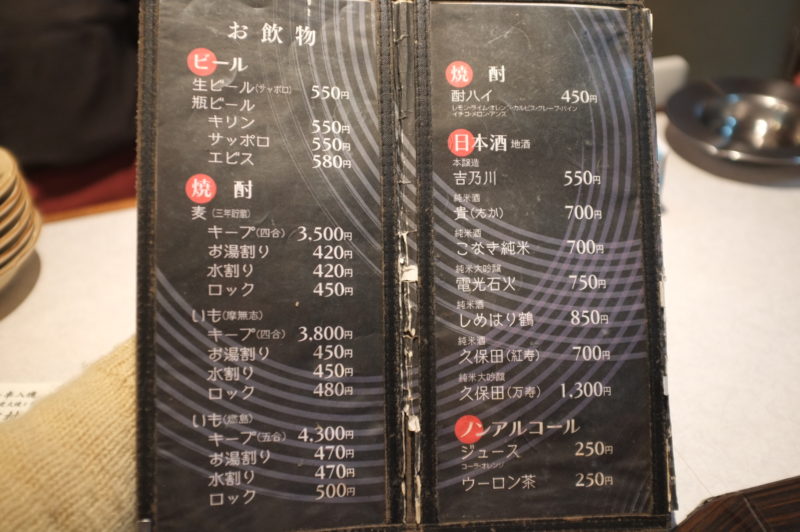 お飲物
ビール
生ビール(サッポロ) 550円
瓶ビール
キリン 550円
サッポロ 550円
エビス 580円
焼酎
麦(三年貯蔵)
キープ(四合) 3,500円
お湯割り 420円
水割り 420円
ロック 450円
いも(摩無志)
キープ(四合) 3,800円
お湯割り 450円
水割り 450円
ロック 480円
いも(燃島)
キープ(五合) 4,300円
お湯割り 470円
水割り 470円
ロック 500円
焼酎
酎ハイ 450円
レモン・ライム・オレンジ・カルピス・グレープ・パイン
イチゴ・メロン・アンズ
日本酒 地酒
本醸造
吉乃川 550円
純米酒
貴(たか) 700円
純米酒
こなき純米 700円
純米大吟醸
電光石火 750円
純米酒
しめはり鶴 850円
純米酒
久保田(紅寿) 700円
純米大吟醸
久保田(万寿) 1,300円
ノンアルコール
ジュース 250円
コーラ・オレンジ
ウーロン茶 250円